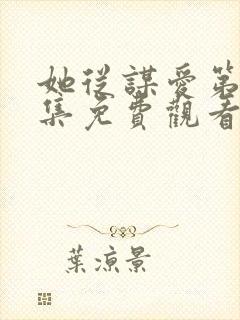 她從謀愛第
集免費觀看
葉涼景